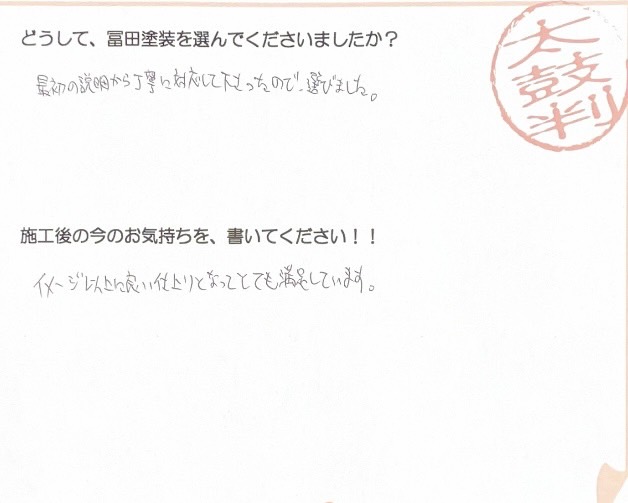 どうして、冨田塗装を選んでくださいましたか？
太鼓判
最初の説明から丁寧に対応して下さったので、選びました。
施工後の今のお気持ちを、書いてください！！
イメージ以上に良い仕上りとなってとても満足しています。